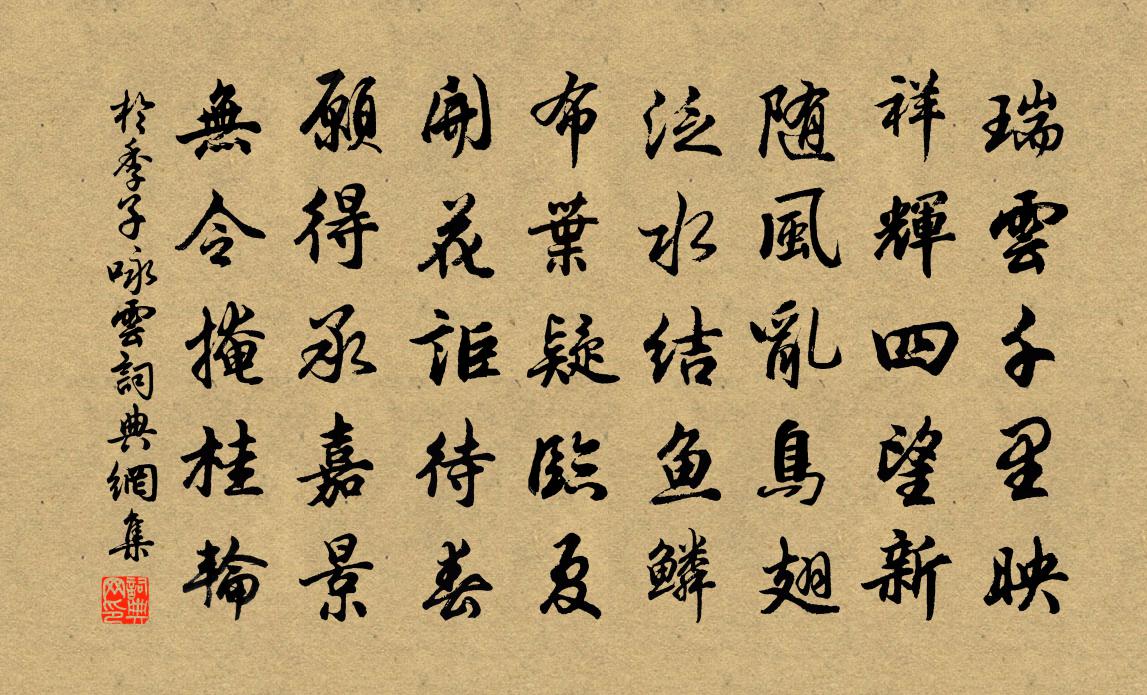 瑞雲千里映
祥輝四望新
隨風亂鳥翅
泛水結魚鱗
布葉疑臨夏
開花詎待春
願得承嘉景
無令掩桂輪
於季子咏雲詞典網集
詞典網印